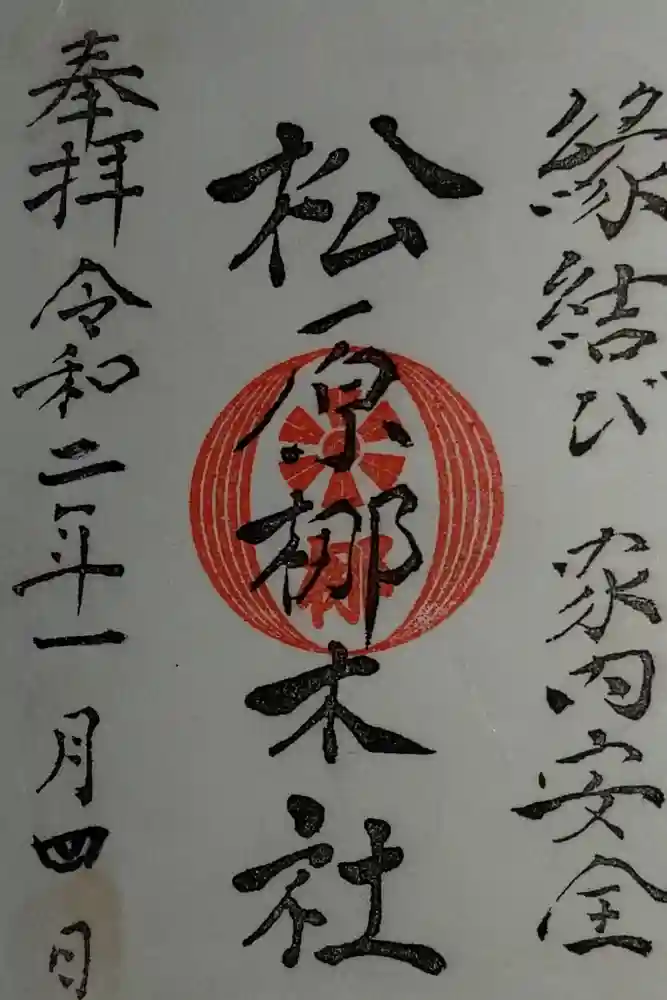 縁結び 家内安全
松原梛木社
奉拝 令和二年一月四日